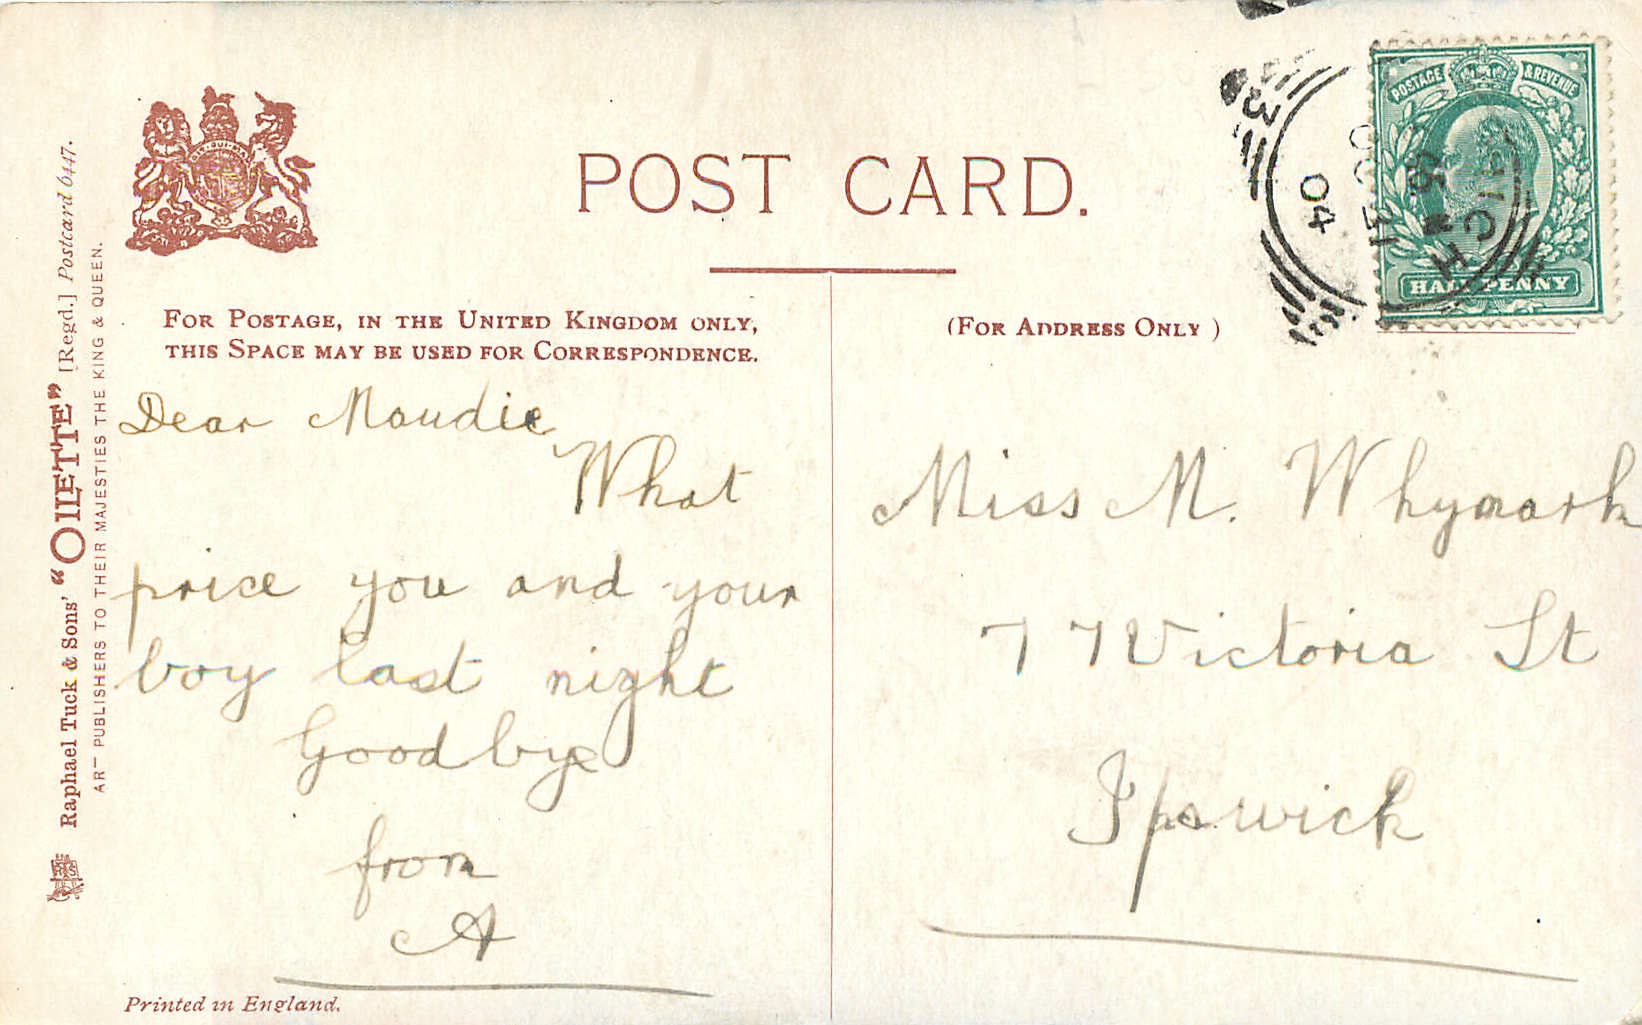 POST CARD.
FOR POSTAGE, IN THE UNITED KINGDOM ONLY,
THIS SPACE MAY BE USED FOR CORRESPONDENCE.
(FOR ADDRESS ONLY )
Dear Maudie
What
price you and your
boy last night
Goodbye
from
A
Miss M. Whymark
77 Victoria St
Ipswich
POSTAGE & REVENUE
HALF PENNY
OC 31
04
Raphael Tuck & Sons' "OILETTE" [Regd.] Postcard 6447.
ART PUBLISHERS TO THEIR MAJESTIES THE KING & QUEEN.
Printed in England.